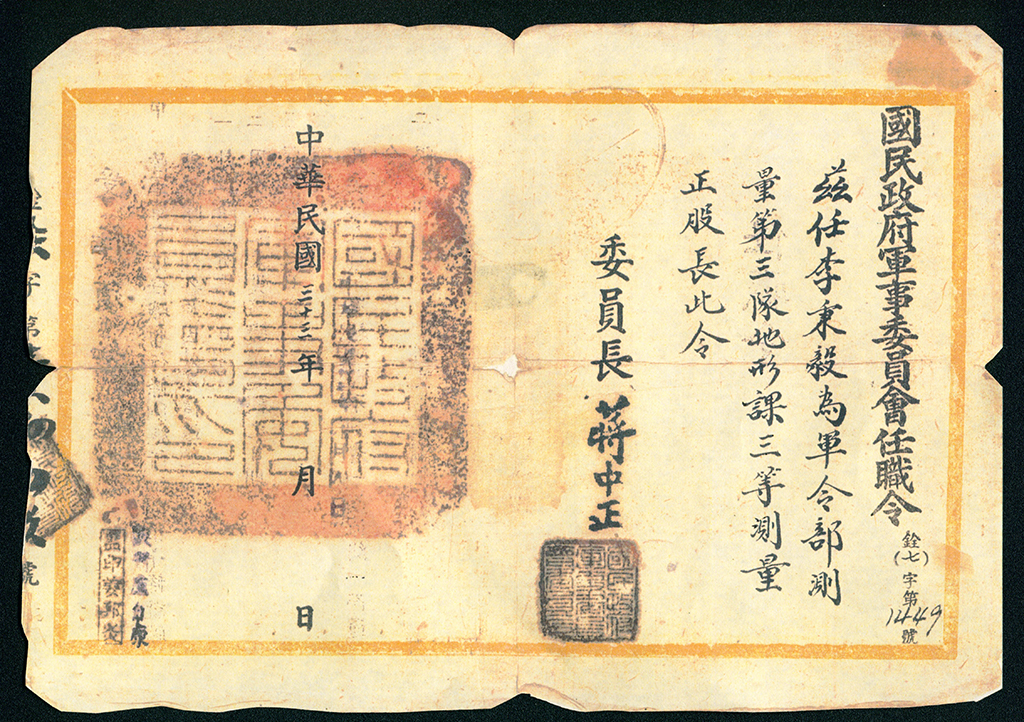 國民政府軍事委員會任職令
銓(七)字第1449號
茲任李秉毅為軍令部測
量第三隊地形課三等測量
正股長此令
委員長蔣中正
中華民國三十三年 月 日